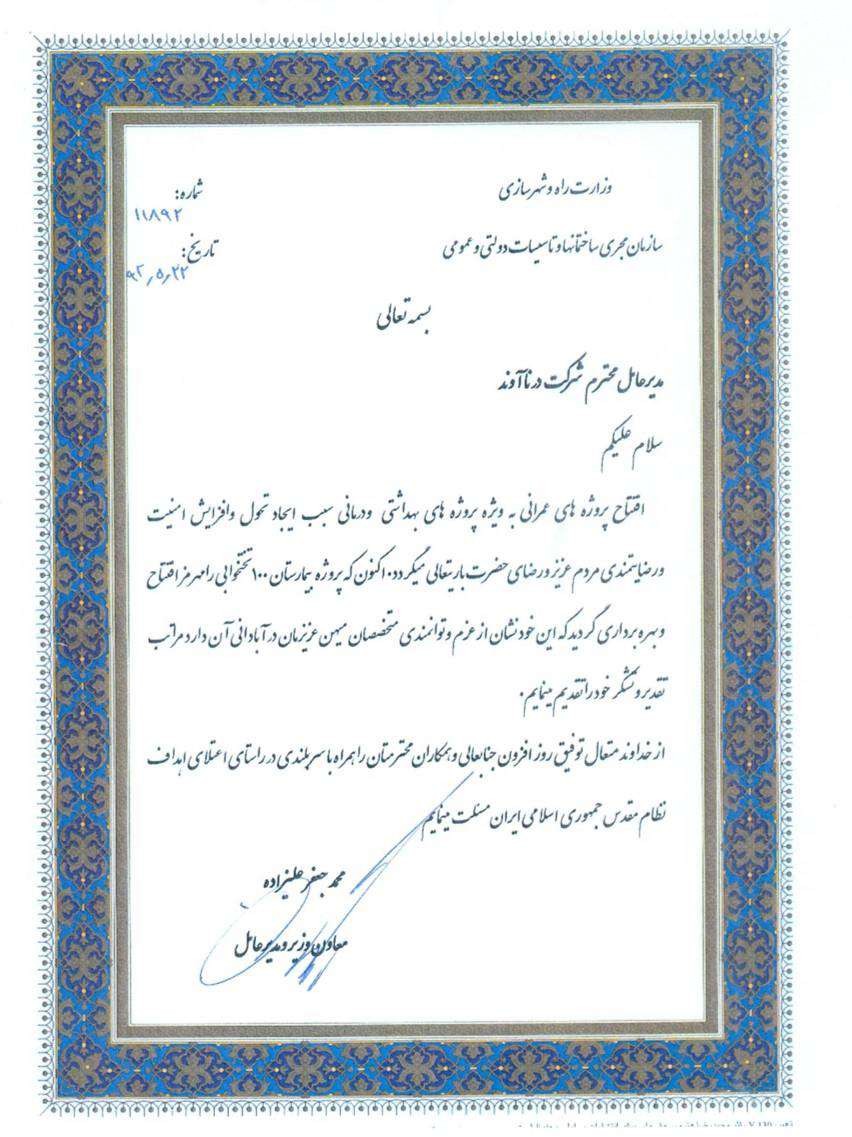 وزارت راه و شهرسازی
سازمان مجری ساختمانها و تاسیسات دولتی و عمومی
شماره:
۱۱۸۹۲
تاریخ:
۹۲٫۵٫۲۲
بسمه تعالی
مدیرعامل محترم شرکت درنا آوند
سلام علیکم
افتتاح پروژه های عمرانی به ویژه پروژه های بهداشتی ودرمانی سبب ایجاد تحول وافزایش امنیت
ورضایتمندی مردم عزیز ورضای حضرت باریتعالی میگردد۰ اکنون که پروژه بیمارستان ۱۰۰ تختخوابی رامهرمز افتتاح
وبهره برداری گردید که این خود نشان از عزم وتوانمندی متخصصان میهن عزیزمان در آبادانی آن دارد مراتب
تقدیر وتشکر خود را تقدیم مینمایم۰
از خداوند متعال توفیق روز افزون جنابعالی وهمکاران محترمتان را همراه با سربلندی در راستای اعتلای اهداف
نظام مقدس جمهوری اسلامی ایران مسئلت مینمایم
محمد جعفر علیزاده
معاون وزیر و مدیرعامل